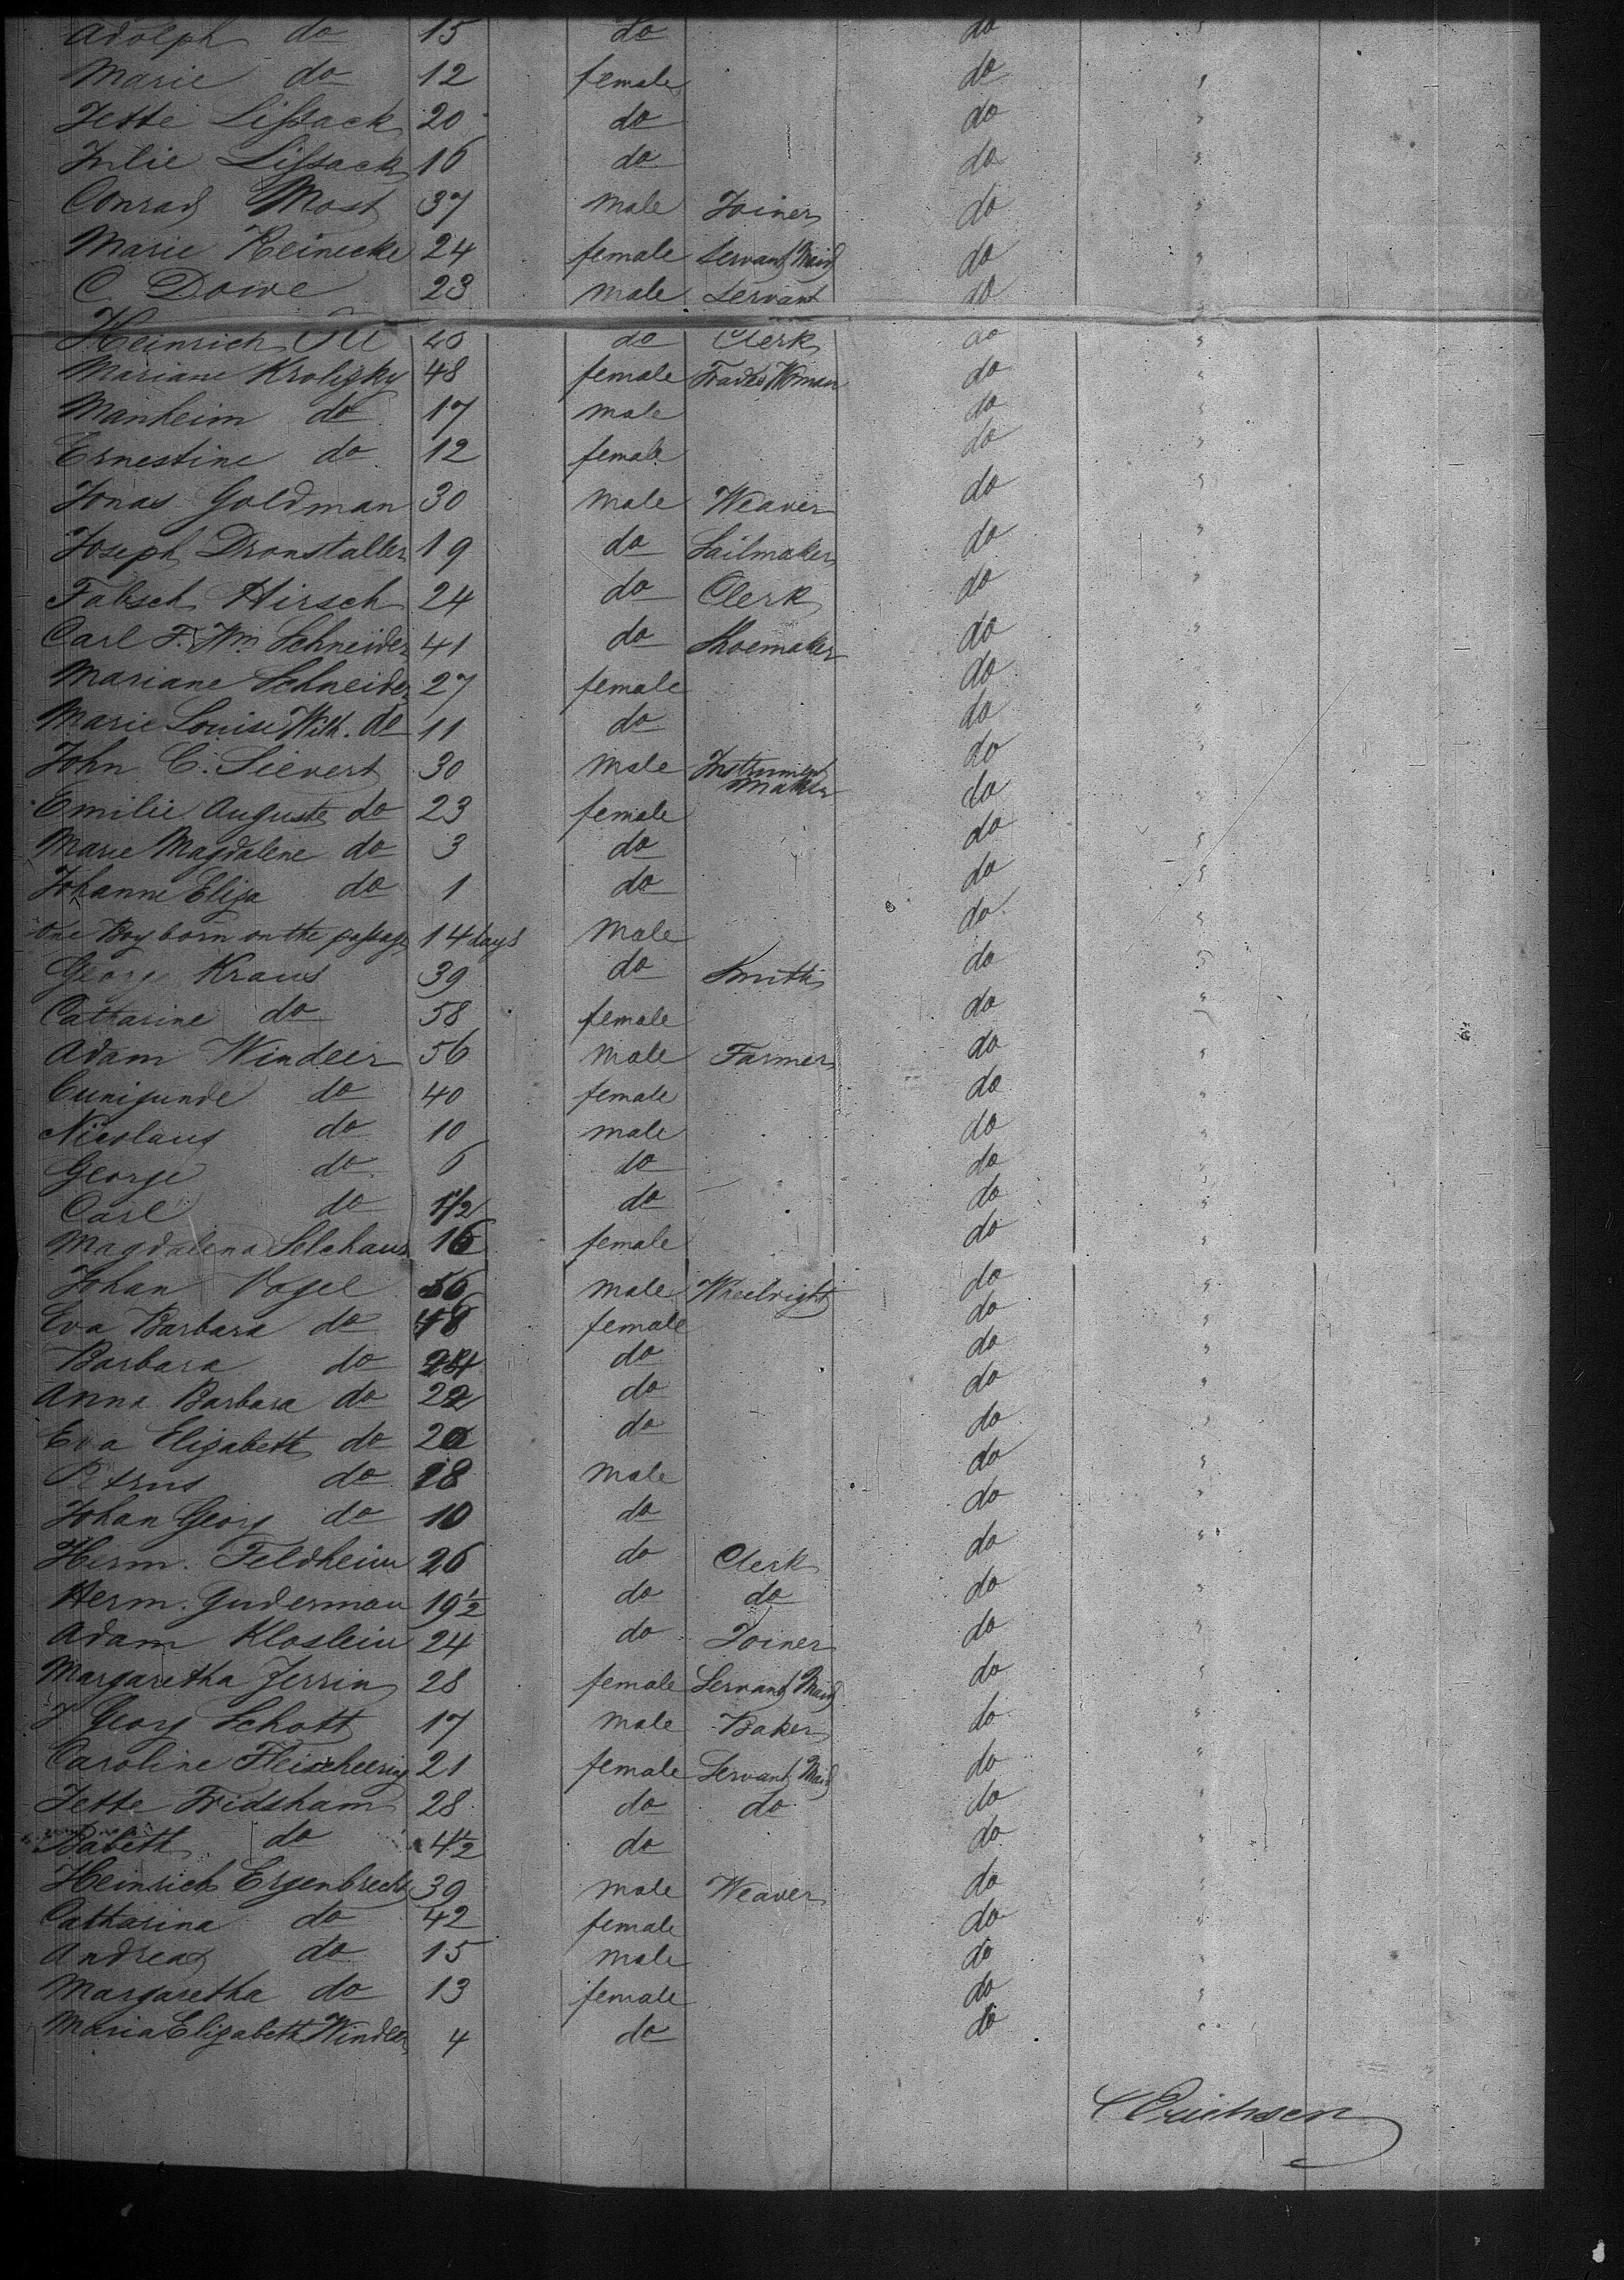 Adolph do 15 do do "
Marie do 12 female do "
Jette Lissack 20 do do "
Julie Lissack 16 do do "
Conrad Most 37 male Joiner do "
Marie Reinecke 24 female Servant Maid do "
C. Dowe 23 male Servant do "
Heinrich do Clerk do "
Mariane Krolizky 48 female Trades Woman do "
Manheim do 17 male do "
Ernestine do 12 female do "
Jonas Goldman 30 male Weaver do "
Joseph Dronstaller 19 do Sailmaker do "
Fabsch Hirsch 24 do Clerk do "
Carl F. Wm. Schneider 41 do Shoemaker do "
Mariane Schneider 27 female do "
Marie Louise Wilh. do 11 do do "
John C. Sievert 30 male Instrument maker do "
Emilie Auguste do 23 female do "
Marie Magdalene do 3 do do "
Johanne Eliza do 1 do do "
One Boy born on the passage 14 days Male do "
Georg Kraus 39 do Smith do "
Catharine do 58 female do "
Adam Windeer 56 male Farmer do "
Cunigunde do 40 female do "
Nicolaus do 10 male do "
George do 6 do do "
Carl do 1/2 do do "
Magdalena Selchaus 16 female do "
Johan Vogel 56 male Wheelright do "
Eva Barbara do 48 female do "
Barbara do 24 do do "
Anna Barbara do 22 do do "
Eva Elizabeth do 20 do do "
Petrus do 18 male do "
Johan Georg do 10 do do "
Herm. Feldheim 26 do Clerk do "
Herm. Guderman 19 1/2 do do do "
Adam Kloslein 24 do Joiner do "
Margaretha Jerrin 28 female Servant Maid do "
J Georg Schott 17 male Baker do "
Caroline Fleischering 21 female Servant Maid do "
Jette Fridsham 28 do do do "
Babeth do 4 1/2 do do "
Heinrich Ergenbrecht 39 male Weaver do "
Catharina do 42 female do "
Andreas do 15 male do "
Margaretha do 13 female do "
Maria Elizabeth Windeer 4 do do "
Erichsen